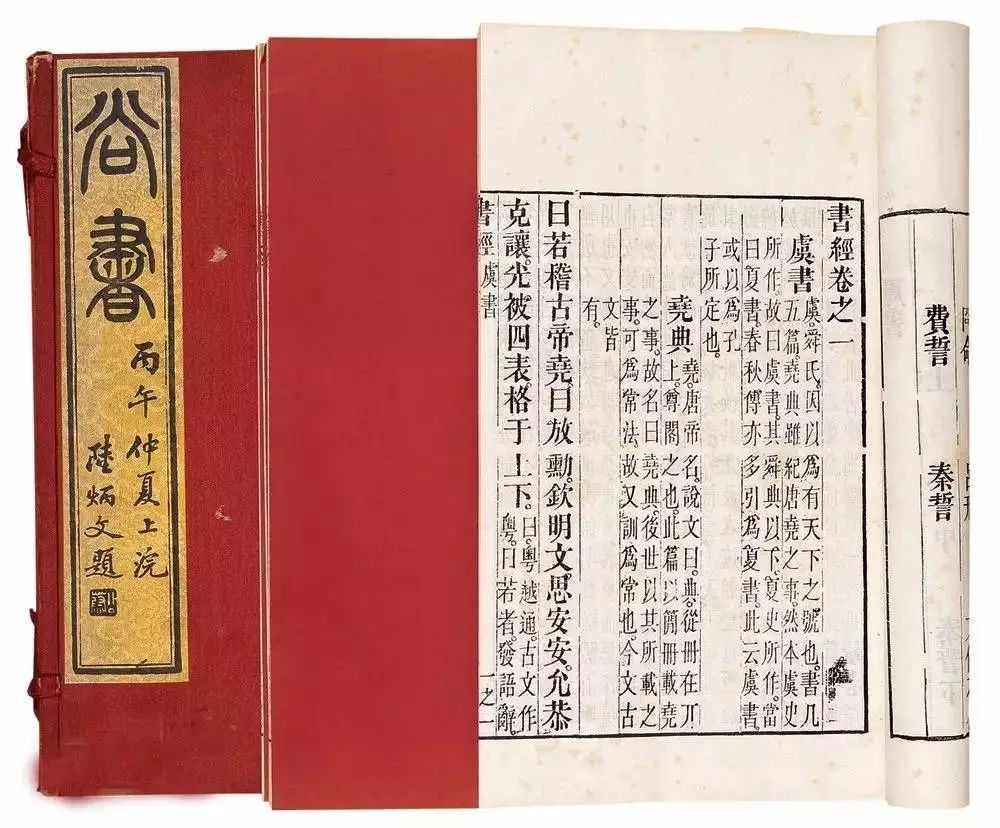 尚書
丙午仲夏上浣
陸炳文題
書經卷之一
虞書 虞。舜氏。因以爲有天下之號也。書凡
五篇。堯典雖紀唐堯之事。然本虞史
所作。故曰虞書。其舜典以下。夏史所作。當
曰夏書。春秋傳亦多引爲夏書。此云虞書。
或以爲孔
子所定也。
堯典 堯。唐帝名。說文曰。典。從冊在丌
上。尊閣之也。此篇以簡冊載堯
之事。故名曰堯典。後世以其所載之
事。可爲常法。故又訓爲常也。今文古
文皆
有。
曰若稽古帝堯。曰放勳。欽明文思安安。允恭
克讓。光被四表。格于上下。曰。粵越通。古文作
粵。曰若者。發語辭。
書經 虞書 一之一
費誓 秦誓